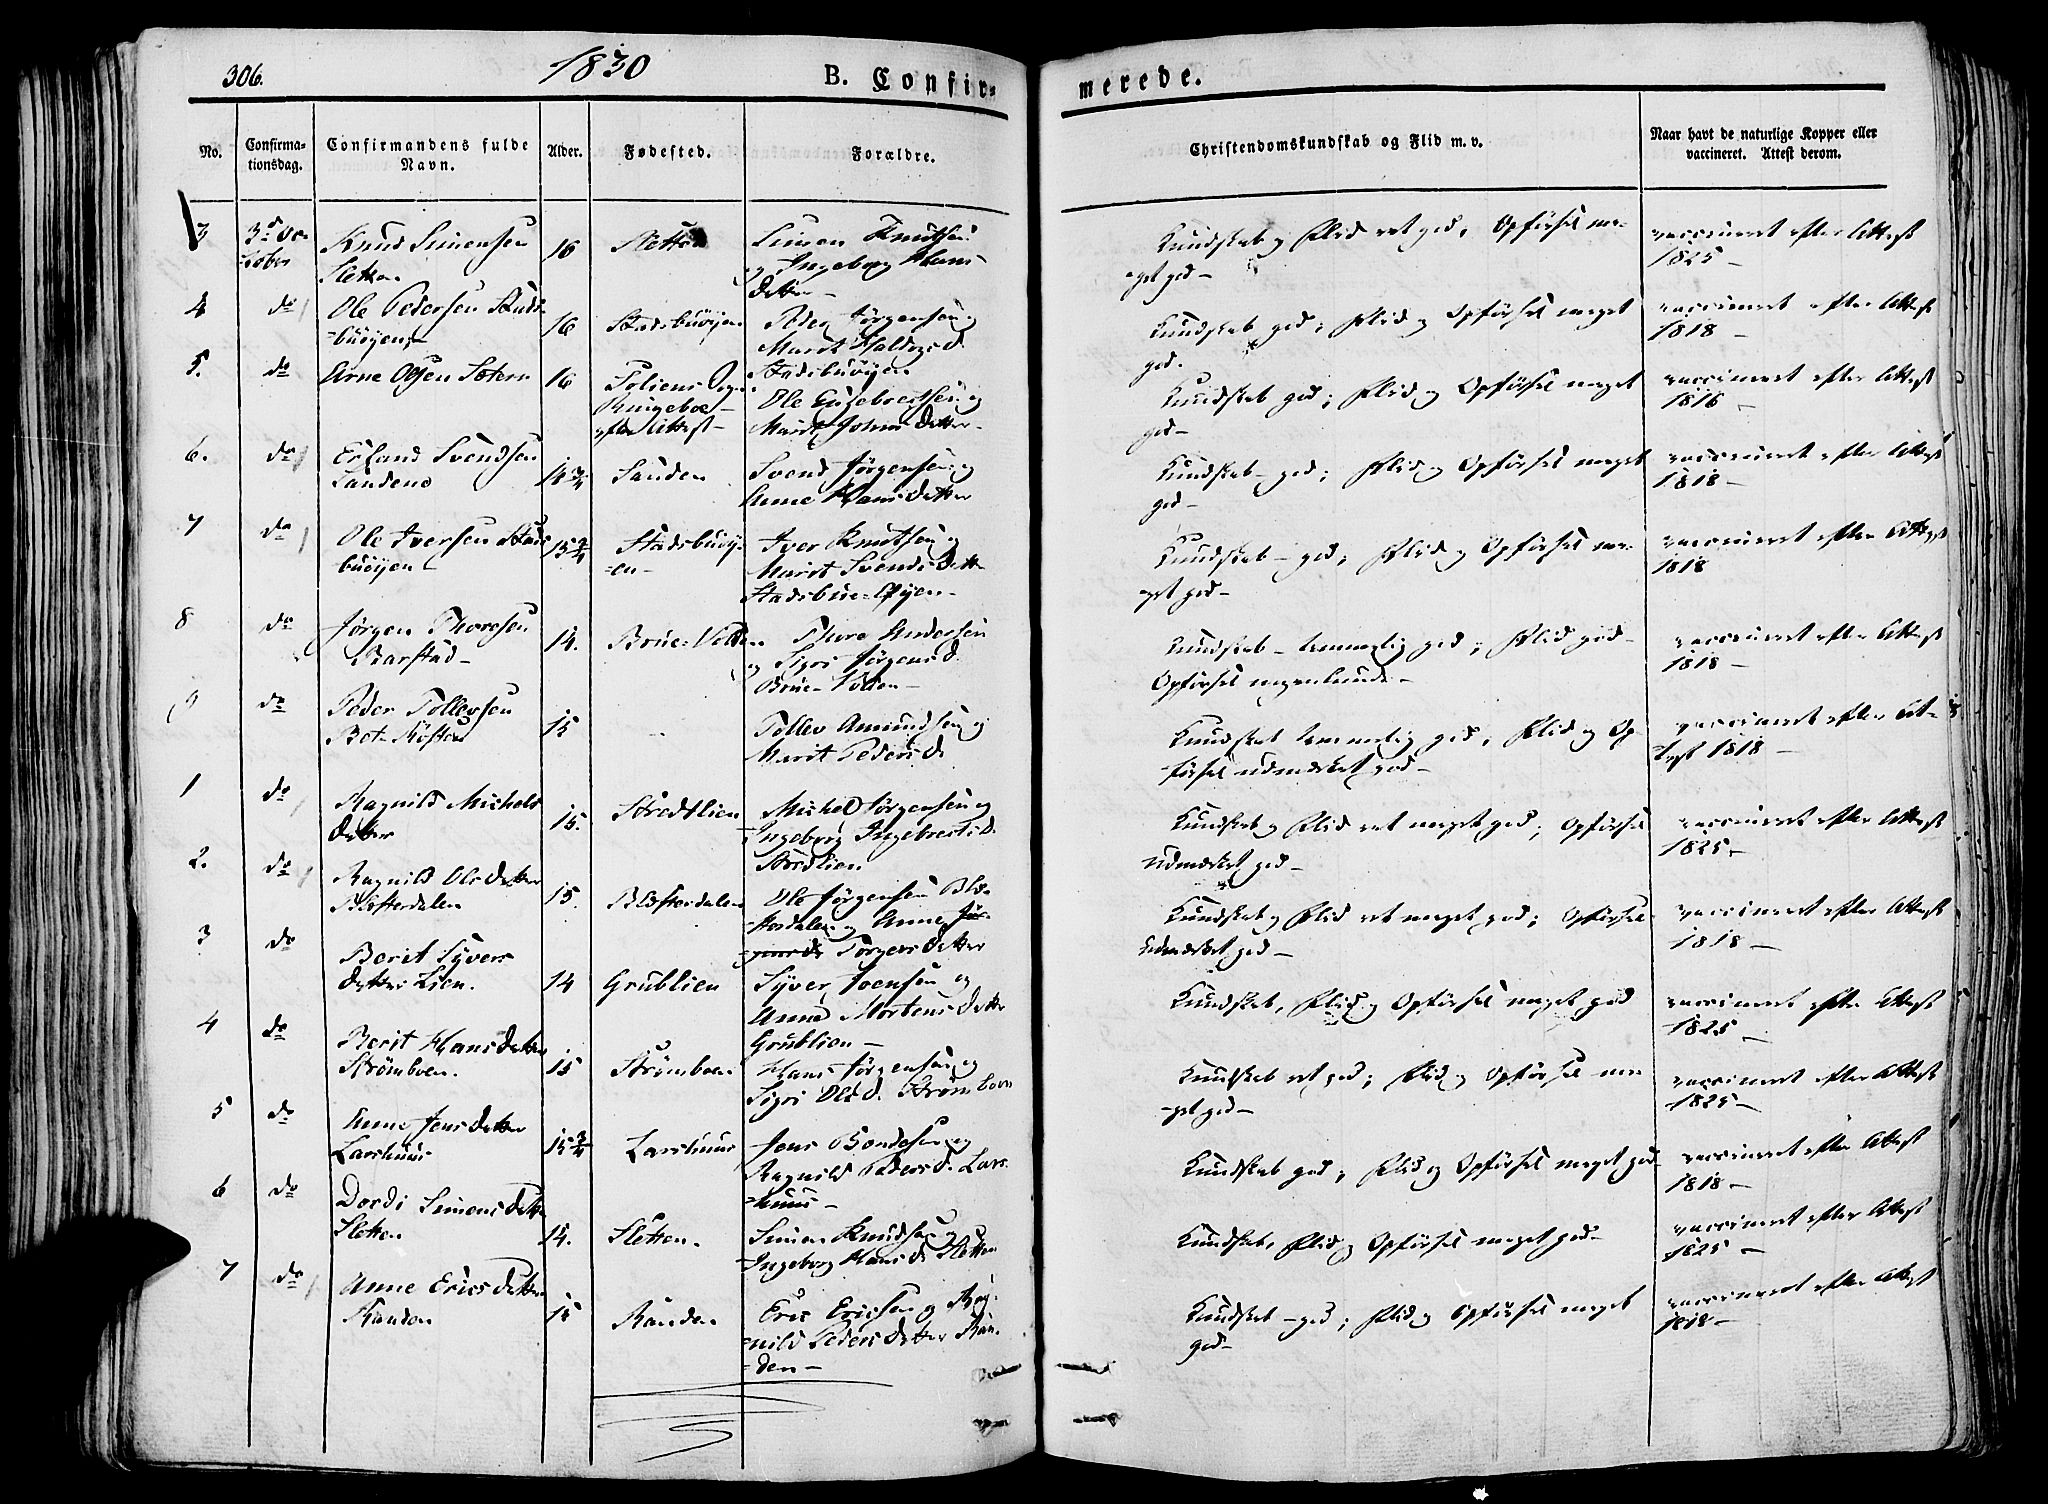 306.
1830
B. Confir-
merede.
No.
Confirma-
tionsdag.
Confirmandens fulde
Navn.
Alder.
Fødested.
Forældre.
Christendomskundskab og Flid m. v.
Naar havt de naturlige Kopper eller
vaccineret. Attest derom.
3 3d Oc-
tober
Knud Simensen
Sletten
16
Sletten
Simen Knutsen
og Ingeborg Hans
Datter-
Kundskab og Flid ret god, Opførsel me-
get god-
vaccineret efter Attest
1825-
4 do Ole Pedersen Stads
=buøyen
16 Stadsbuøyen
Peder Jørgensen og
Marit Haldorsd.
Stadsbuøyen
Kundskab god; Flid og Opførsel meget
god.
vaccineret efter Attest
1818-
5. do Arne Olsen Sætern
16
Foliens Sogn
Ringeboe-
efter Attest-
Ole Engebretsen og
Marit Johns Datter-
Kundskab god; Flid og Opførsel meget
god-
vaccineret efter Attest
1816-
6. do Erland Svendsen
Sandene
18 3/4 Sanden
Svend Jørgensen og
Anne Hans Datter
Kundskab- god; Flid og Opførsel meget
god-
vaccineret efter Attest
1818-
7 do Ole Iversen Stads
buøyen-
15 3/4 Stadsbuøy-
=en-
Iver Knutsen og
Marit Svends Datt-
Stadsbue-Øyen-
Kundskab- god; Flid og Opførsel me-
get god-
vaccineret efter Attest
1818
8 do Jørgen Thoresen
Barstad-
14. Brue-Volden
Thore Andersen
og Sigri Jørgensd.
Brue-Volden-
Kundskab- temmelig god; Flid god-
Opførsel
vaccineret efter Attest
1818-
9 do Peder Tollevsen
15
Tollev Amundsen og
Marit Pedersd.
Kundskab temmelig god, Flid og Op-
førsel udmærket god-
vaccineret efter At-
test 1818-
1 do Ragnild Michels
Datter
15. Strædtlien
Michel Jørgensen og
Ingeborg Ingebretsd.
Strædlien
Kundskab og Flid ret meget god; Opførsel
udmærket god-
vaccineret efter Attest
1825-
2. do Ragnild Ols Datter
Blæsterdalen
15. Blæsterdalen
Ole Jørgensen Blæ-
sterdalen og Anne
Torgers Datter
Kundskab og Flid ret meget god; Opførsel
udmærket god-
vaccineret efter Attest
1818-
3 do Berit Syvers
Datter Lien.
14 Grublien
Syver Joensen og
Anne Mortens Datter
Grublien-
Kundskab, Flid og Opførsel meget god
vaccineret efter Attest
1825-
4 do Berit Hans Datter
Strømboen.
15 Strømboen
Hans Jørgensen og
Sigri Olsd. Strømboen
Kundskab ret god; Flid og Opførsel me-
-get god-
vaccineret efter Attest
1825-
5 do Anne Jens Datter
Larshuus
15 3/4 Larshuus
Jens Bondesen og
Ragnild Pedersd. Lars-
=huus-
Kundskab god; Flid og Opførsel meget god-
vaccineret efter Attest
1818-
6 do Dordi Simens Datter
Sletten
14. Sletten.
Simen Knudsen og
Ingeborg Hansd. Sletten
Kundskab, Flid og Opførsel meget god-
vaccineret efter Attest
1825-
7 do Anne Erics Datter
Randen
15 Randen
Eric Ericsen og Rag-
=nild Peders Datter Ran-
=den-
Kundskab- god; Flid og Opførsel meget
god-
vaccineret efter Attest
1818-